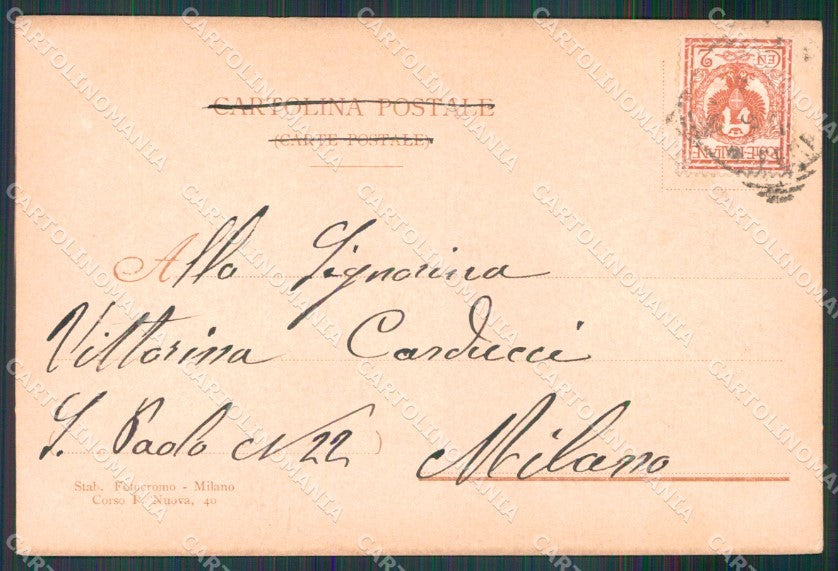 CARTOLINA POSTALE
(CARTE POSTALE)
POSTE ITALIANE
CEN 2
Alla Signorina
Vittorina Carducci
S. Paolo N 22
Milano
Stab. Fotocromo - Milano
Corso P. Nuova, 40
CARTOLINOMANIA